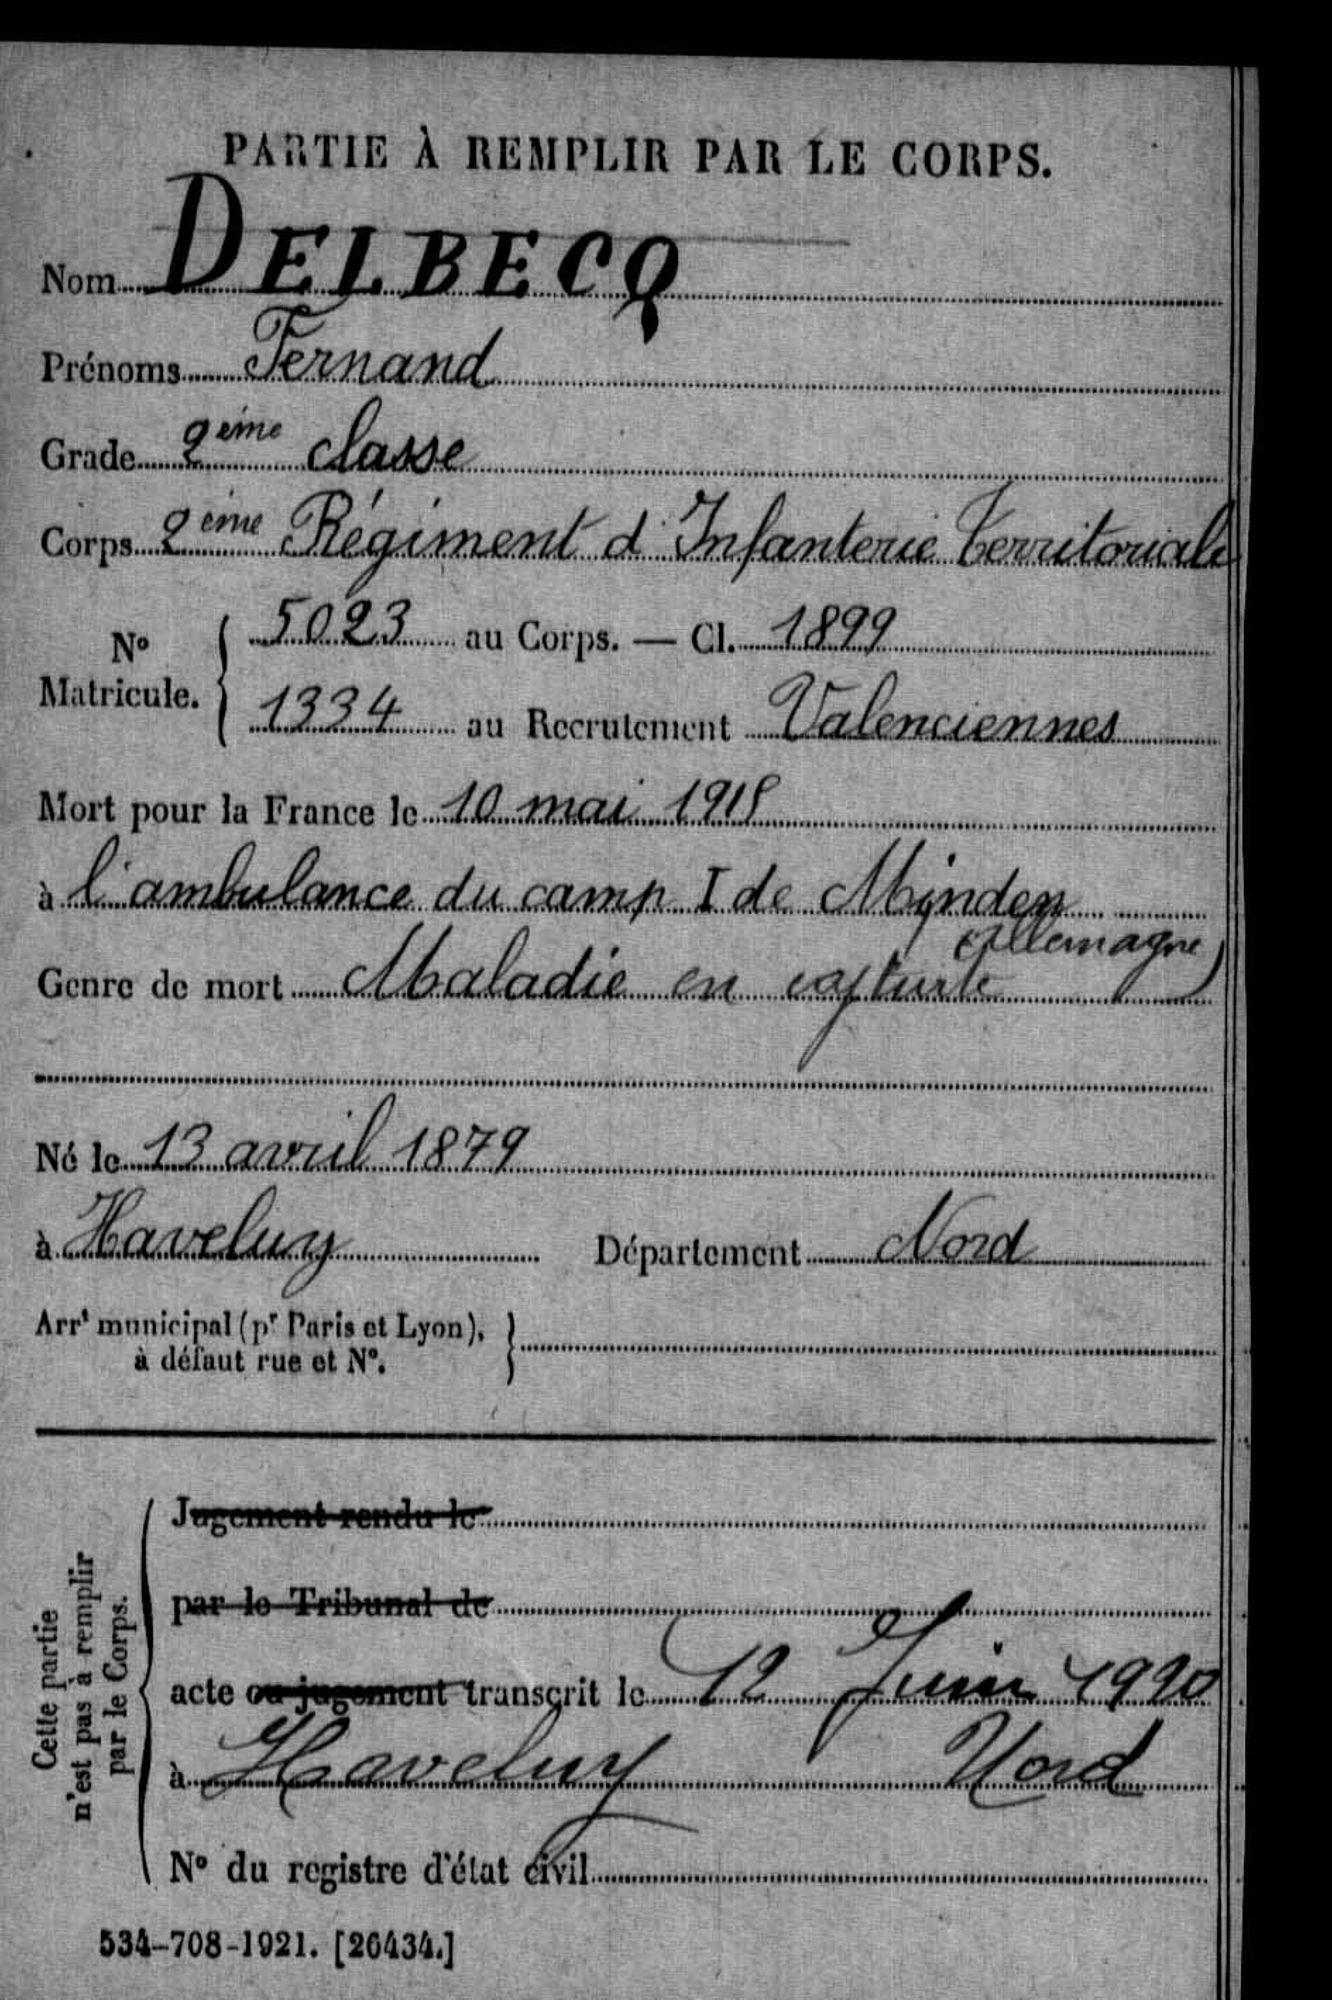 PARTIE À REMPLIR PAR LE CORPS.
Nom DELBECQ
Prénoms Fernand
Grade 2ème classe
Corps 2ème Régiment d'Infanterie Territoriale
No Matricule. 5023 au Corps. — Cl. 1899
1334 au Recrutement Valenciennes
Mort pour la France le 10 mai 1918
à l'ambulance du camp I de Minden
Allemagne)
Genre de mort Maladie en
Né le 13 avril 1879
à Haveluy Département Nord
Arrt municipal (pr Paris et Lyon),
à défaut rue et No.
Cette partie
n'est pas à remplir
par le Corps.
Jugement rendu le
par le Tribunal de
acte ou jugement transcrit le 12 Juin 1920
à Haveluy Nord
No du registre d'état civil
534-708-1921. [26434.]